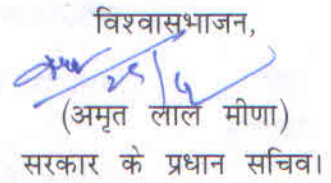 विश्वासभाजन,
25/6
(अमृत लाल मीणा)
सरकार के प्रधान सचिव।